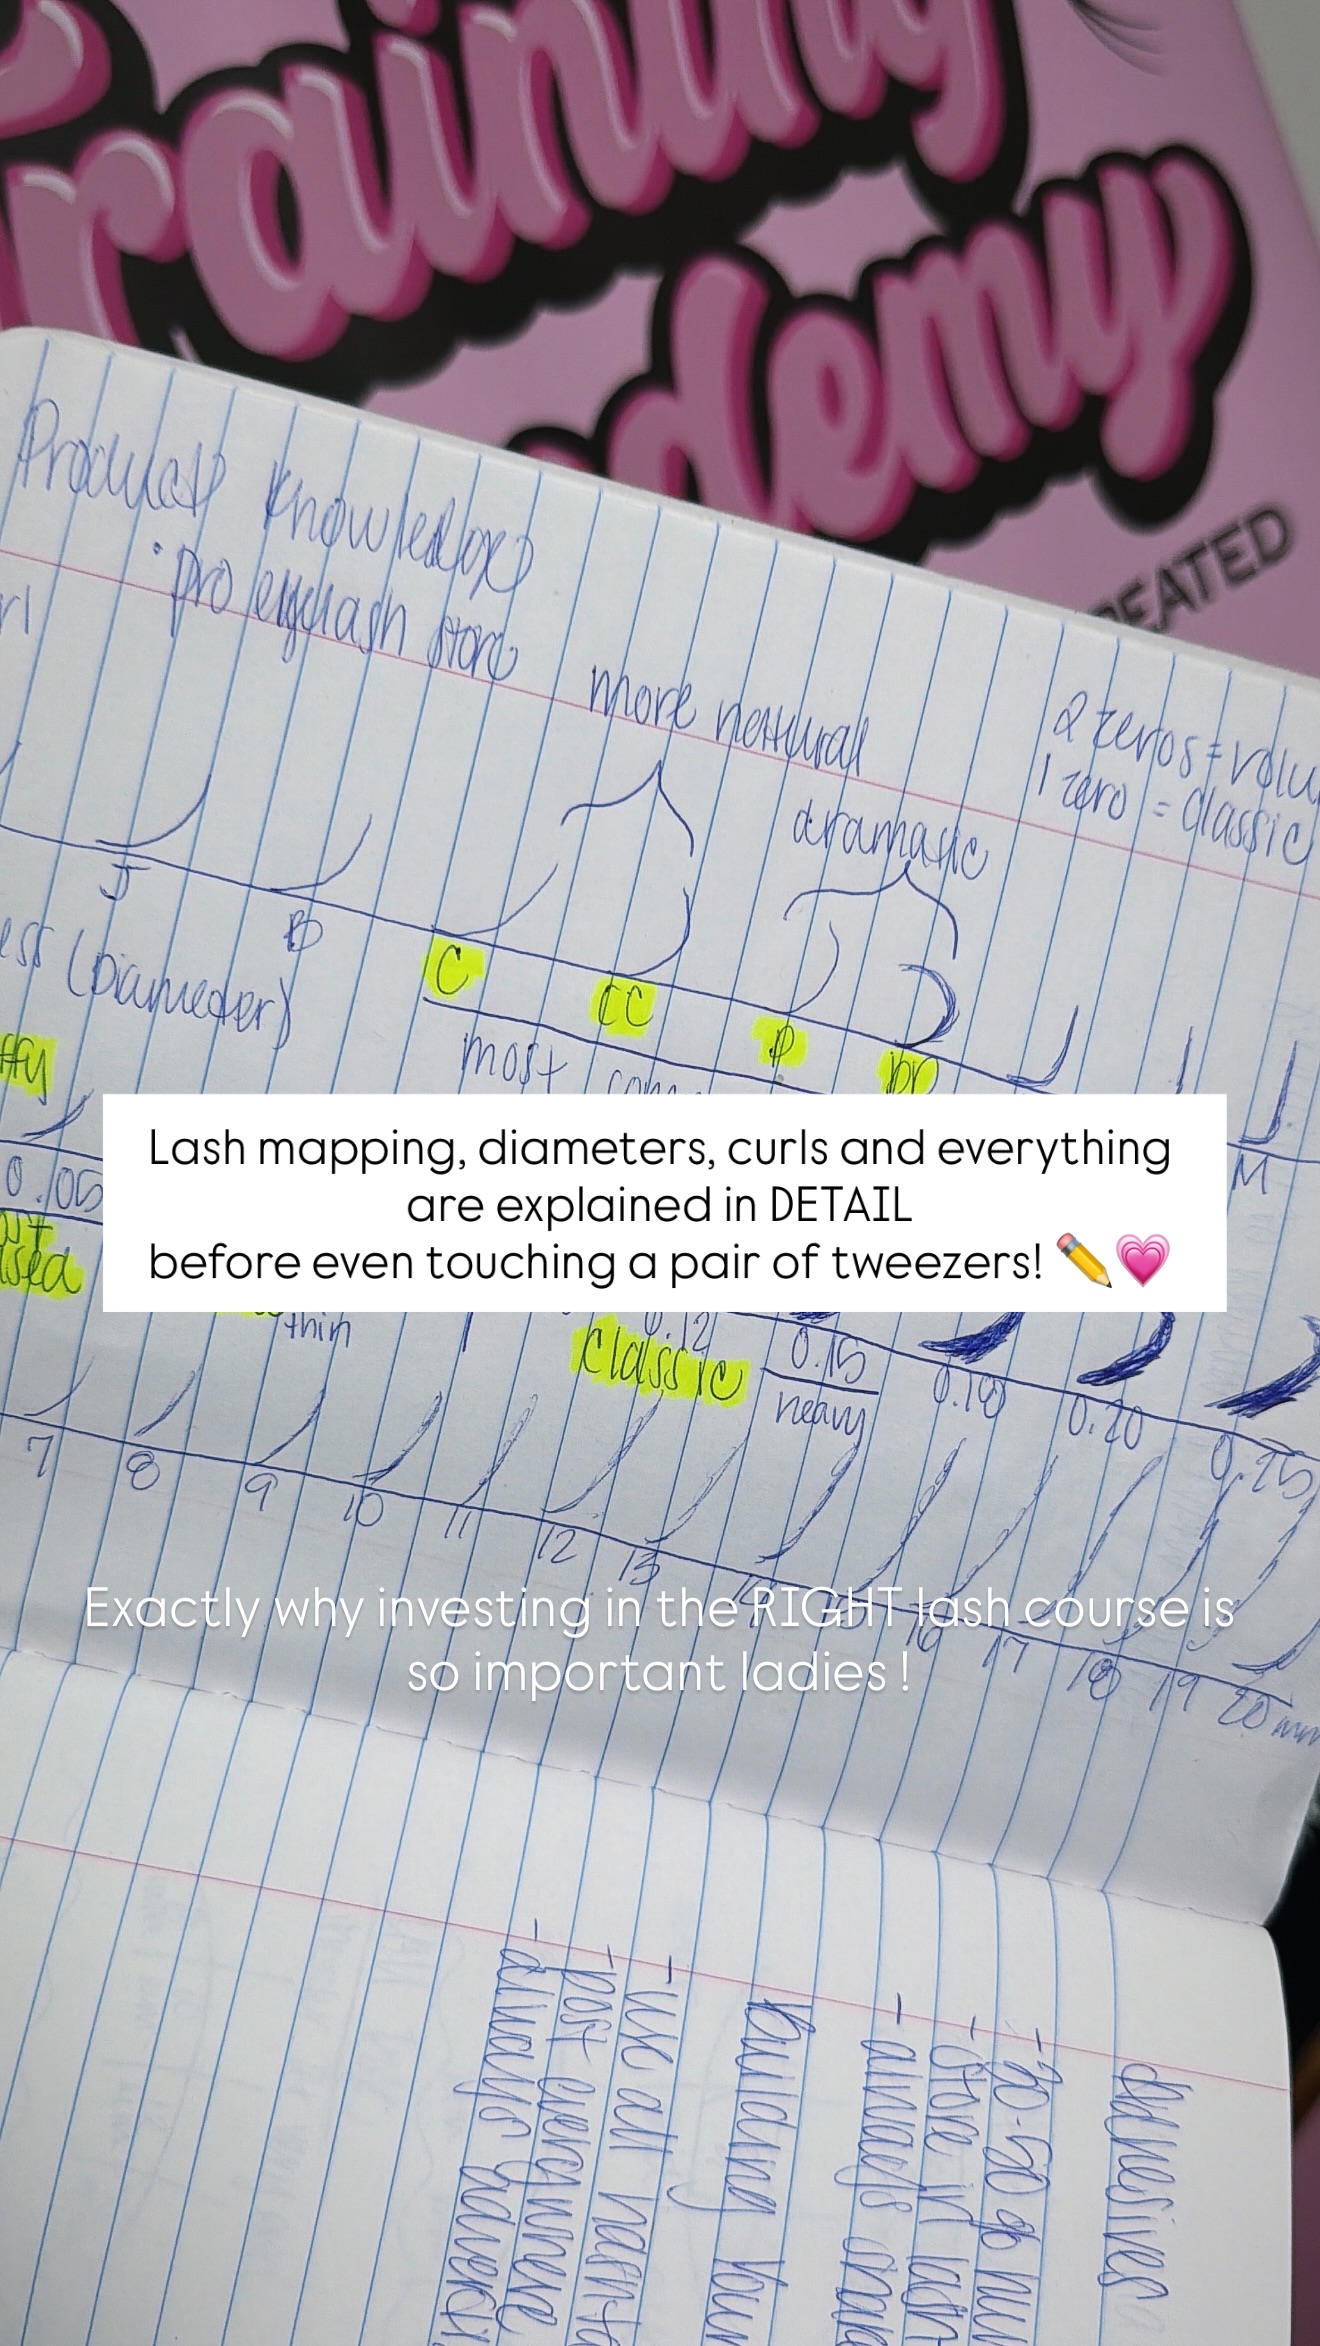 Training
demy
REATED
Product Knowledge
· pro eyelash store
more natural
2 zeros = volu
1 zero = classic
dramatic
J
B
C
CC
D
DD
M
ess (Diameter)
most
0.05
Lash mapping, diameters, curls and everything
are explained in DETAIL
before even touching a pair of tweezers! ✏️💗
thin
0.12
classic
0.15
heavy
0.18
0.20
0.25
7 8 9 10 11 12 13 14 16 17 18 19 20mm
Exactly why investing in the RIGHT lash course is
so important ladies !
Adhesives
- store in lash
- always
Building your
- use all
- post everywhere
- always